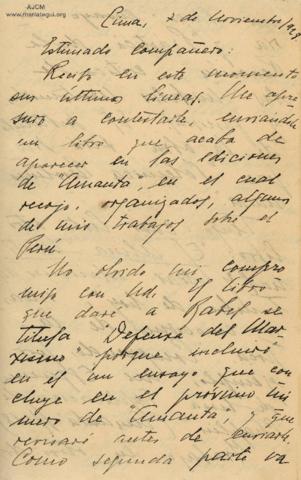 AJCM
www.mariategui.org
Lima, 7 de noviembre/1928
Estimado compañero:
Recibo en este momento
sus últimas líneas. Me apre
suro a contestarle, enviándole
un libro que acaba de
aparecer en las ediciones
de "Amauta", en el cual
recojo, organizados, algunos
de mis trabajos sobre el
Perú.
No olvido mi compro
miso con Ud. El libro
que daré a Babel se
titula "Defensa del Mar
xismo" porque incluiré
en él un ensayo que con
cluye en el próximo nú
mero de "Amauta", y que
revisaré antes de enviarle.
Como segunda parte va